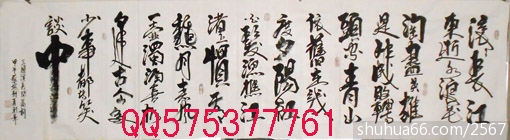 滚滚長江
東逝水浪花
淘盡英雄
是非成敗轉
頭空青山
依舊在幾
度夕陽紅
白髮漁樵江
渚上慣看
秋月春風
一壺濁酒喜
相逢古今多
少事都付笑
談中
QQ575377761
shuhua66.com/2567